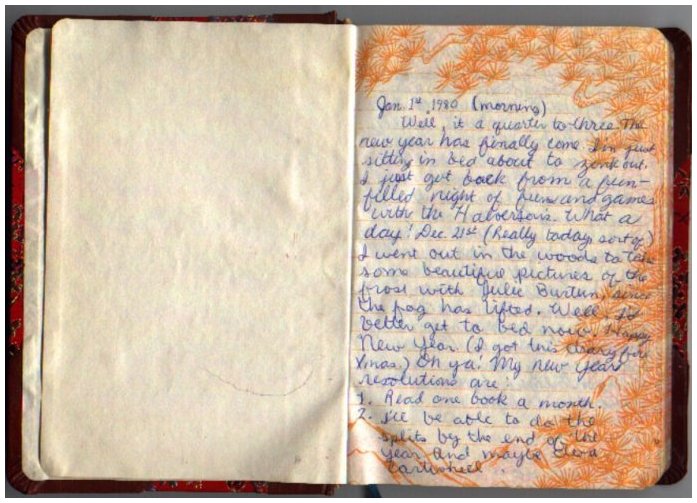 Jan. 1st, 1980 (morning)
Well, it a quarter to three. The
new year has finally come. I'm just
sitting in bed about to zonk out.
I just got back from a fun-
filled night of fun and games
with the Halversons. What a
day! Dec. 21st (Really today sort of)
I went out in the woods to take
some beautiful pictures of the
frost with Julie Burton, since
the fog has lifted. Well, I'd
better get to bed now. Happy
New Year. (I got this diary for
Xmas.) Oh ya! My new year
resolutions are:
1. Read one book a month.
2. I'll be able to do the
splits by the end of the
year and maybe
cartwheel.